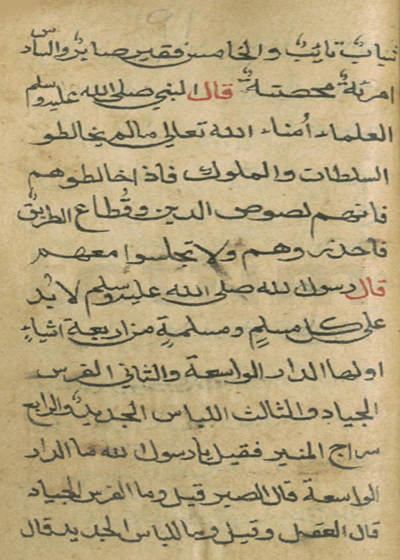 شاب تايب والخامس فقير صابر والسادس
امرئة محصنة قال النبي صلى الله عليه وسلم
العلماء أمناء الله تعالى مالم يخالطو
السلطات والملوك فاذا خالطوهم
فانهم لصوص الدين وقطاع الطريق
فاحذروهم ولا تجلسوا معهم
قال رسول الله صلى الله عليه وسلم لا بد
على كل مسلم ومسلمة من اربعة اشياء
اولها الدار الواسعة والثاني الفرس
الجياد والثالث اللباس الجديد والرابع
سراج المنير فقيل يا رسول الله ما الدار
الواسعة قال الصبر قيل وما الفرس الجياد
قال العقل وقيل وما اللباس الجديد قال